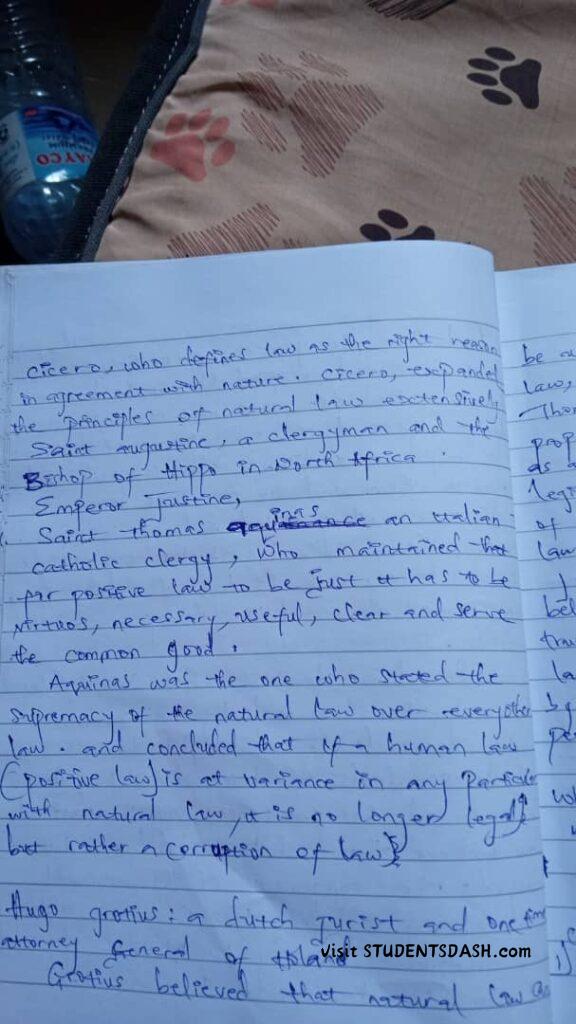 MAYCO
Cicero, who defines law as the right reason
in agreement with nature. Cicero, expanded
the principles of natural law extensively
Saint augustine, a clergyman and the
Bishop of Hippo in North Africa.
Emperor Justine,
Saint thomas aquinas an Italian
catholic clergy, who maintained that
for positive law to be just it has to be
virtuos, necessary, useful, clear and serve
the common good.
Aquinas was the one who stated the
supremacy of the natural law over everyother
law. and concluded that if a human law
(positive law) is at variance in any particular
with natural law, it is no longer legal,
but rather a corruption of law
Hugo grotius: a dutch jurist and one time
attorney General of Holand
Grotius believed that natural law
be a
law,
Thom
prop
as a
legi
of
law
bel
tra
la
by
pe
wh
Visit STUDENTSDASH.com